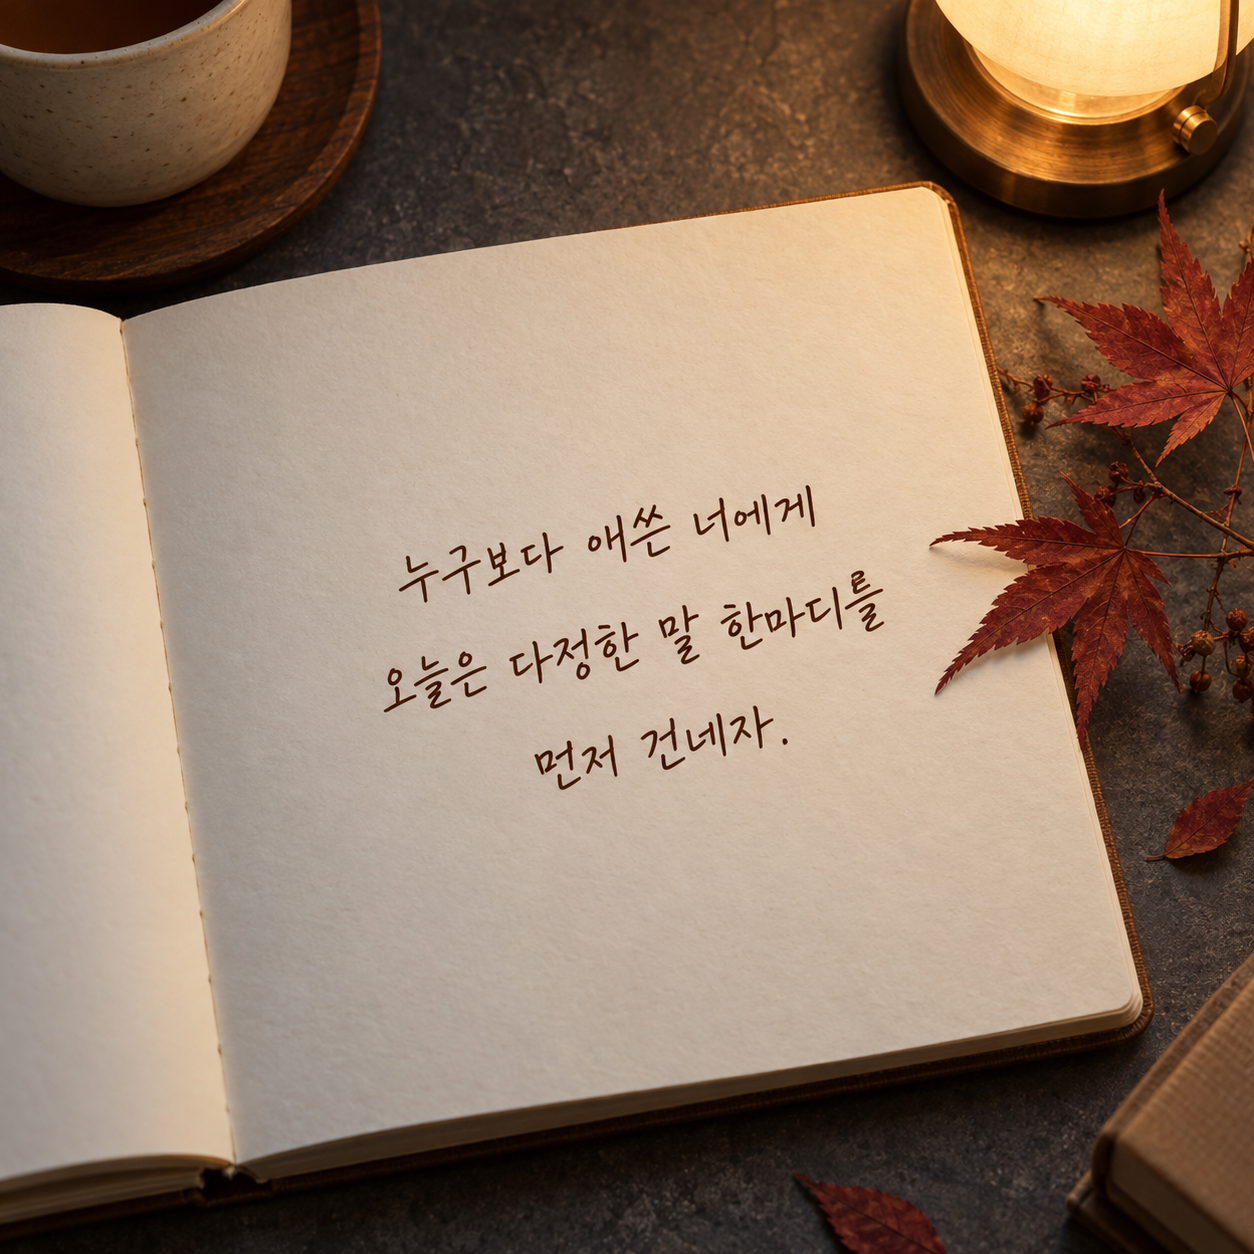 누구보다 애쓴 너에게
오늘은 다정한 말 한마디를
먼저 건네자.